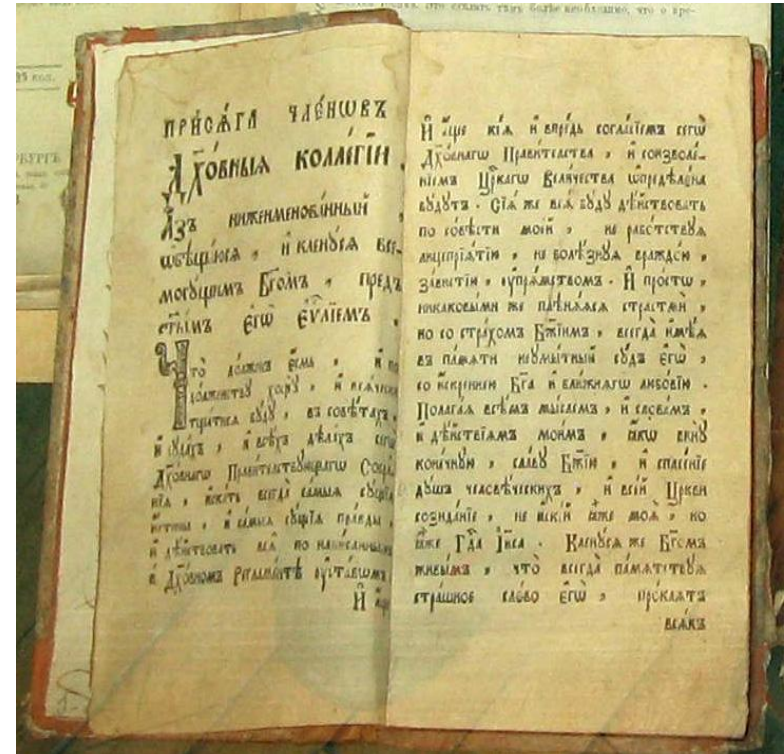 что о вре-
25 коп.
ПРИСѦ́ГА ЧЛЕ́НѠВЪ
ДХ҃О́ВНЫѦ КОЛЛЕ́ГІИ .
А҆́зъ нижеименова́нный ,
ѡ҆бѣща́юсѧ , и҆ клену́сѧ все-
могꙋ́щимъ Бг҃омъ , пред̾
ст҃ы́мъ є҆гѡ̀ є҆ѵⷢ҇лїемъ ,
Что̀ до́лженъ є҆́смь , и҆ по
до́лженствꙋ хощꙋ̀ , и҆ всѧ́чески
тщатисѧ бꙋ́дꙋ , въ совѣ́тахъ ,
и҆ сꙋда́хъ , и҆ всѣ́хъ дѣ́лахъ сегѡ̀
Дх҃о́внагѡ Прави́телствꙋющагѡ Собра́
нїѧ , и҆ска́ть всегда̀ са́мыѧ сꙋ́щїѧ
и҆́стины , и҆ са́мыѧ сꙋ́щїѧ пра́вды ,
и҆ дѣ́йствовать всѧ̀ по написа́ннымъ
в̾ Дх҃о́вномъ Регла́ментѣ ᲂу҆ста́вѡмъ
И҆ а҆́ще
И҆ а҆́ще кі́ѧ и҆ впре́дь согла́сїемъ сегѡ̀
Дх҃о́внагѡ Прави́телства , и҆ соизволе́-
нїемъ Цр҃кагѡ Вели́чества ѡ҆предѣле́на
бꙋ́дꙋтъ . Сїѧ̑ же всѧ̀ бꙋ́дꙋ дѣ́йствовать
по со́вѣсти мое́й , не рабо́тствꙋѧ
лицепрїѧ́тїю , не болѣ́знꙋѧ враждо́ю ,
за́вистїю , ᲂу҆прѧ́мствомъ . И҆ про́стѡ ,
никаковы́ми же плѣнѧ́ѧсѧ страстьмѝ ,
но со стра́хомъ Бж҃їимъ , всегда̀ и҆мѣ́ѧ
въ па́мѧти неꙋмы́тный сꙋ́дъ є҆гѡ̀ ,
со и҆́скреннею Бг҃а и҆ бли́жнѧгѡ любо́вїю .
Полага́ѧ всѣ́мъ мы́слемъ , и҆ слове́мъ ,
и҆ дѣ́йствїѧмъ мои́мъ , ꙗ҆́кѡ винꙋ̀
коне́чнꙋю , сла́вꙋ Бж҃їю , и҆ спасе́нїе
дꙋ́шъ человѣ́ческихъ , и҆ всей Цр҃кви
созида́нїе , не и҆скі́й ꙗ҆̀же моѧ̑ , но
ꙗ҆̀же Гд҇а І҆и҃са . Клену́сѧ же Бг҃омъ
живы́мъ , что̀ всегда̀ па́мѧтствꙋѧ
стра́шное сло́во є҆гѡ̀ , про́клѧтъ
всѧ́къ